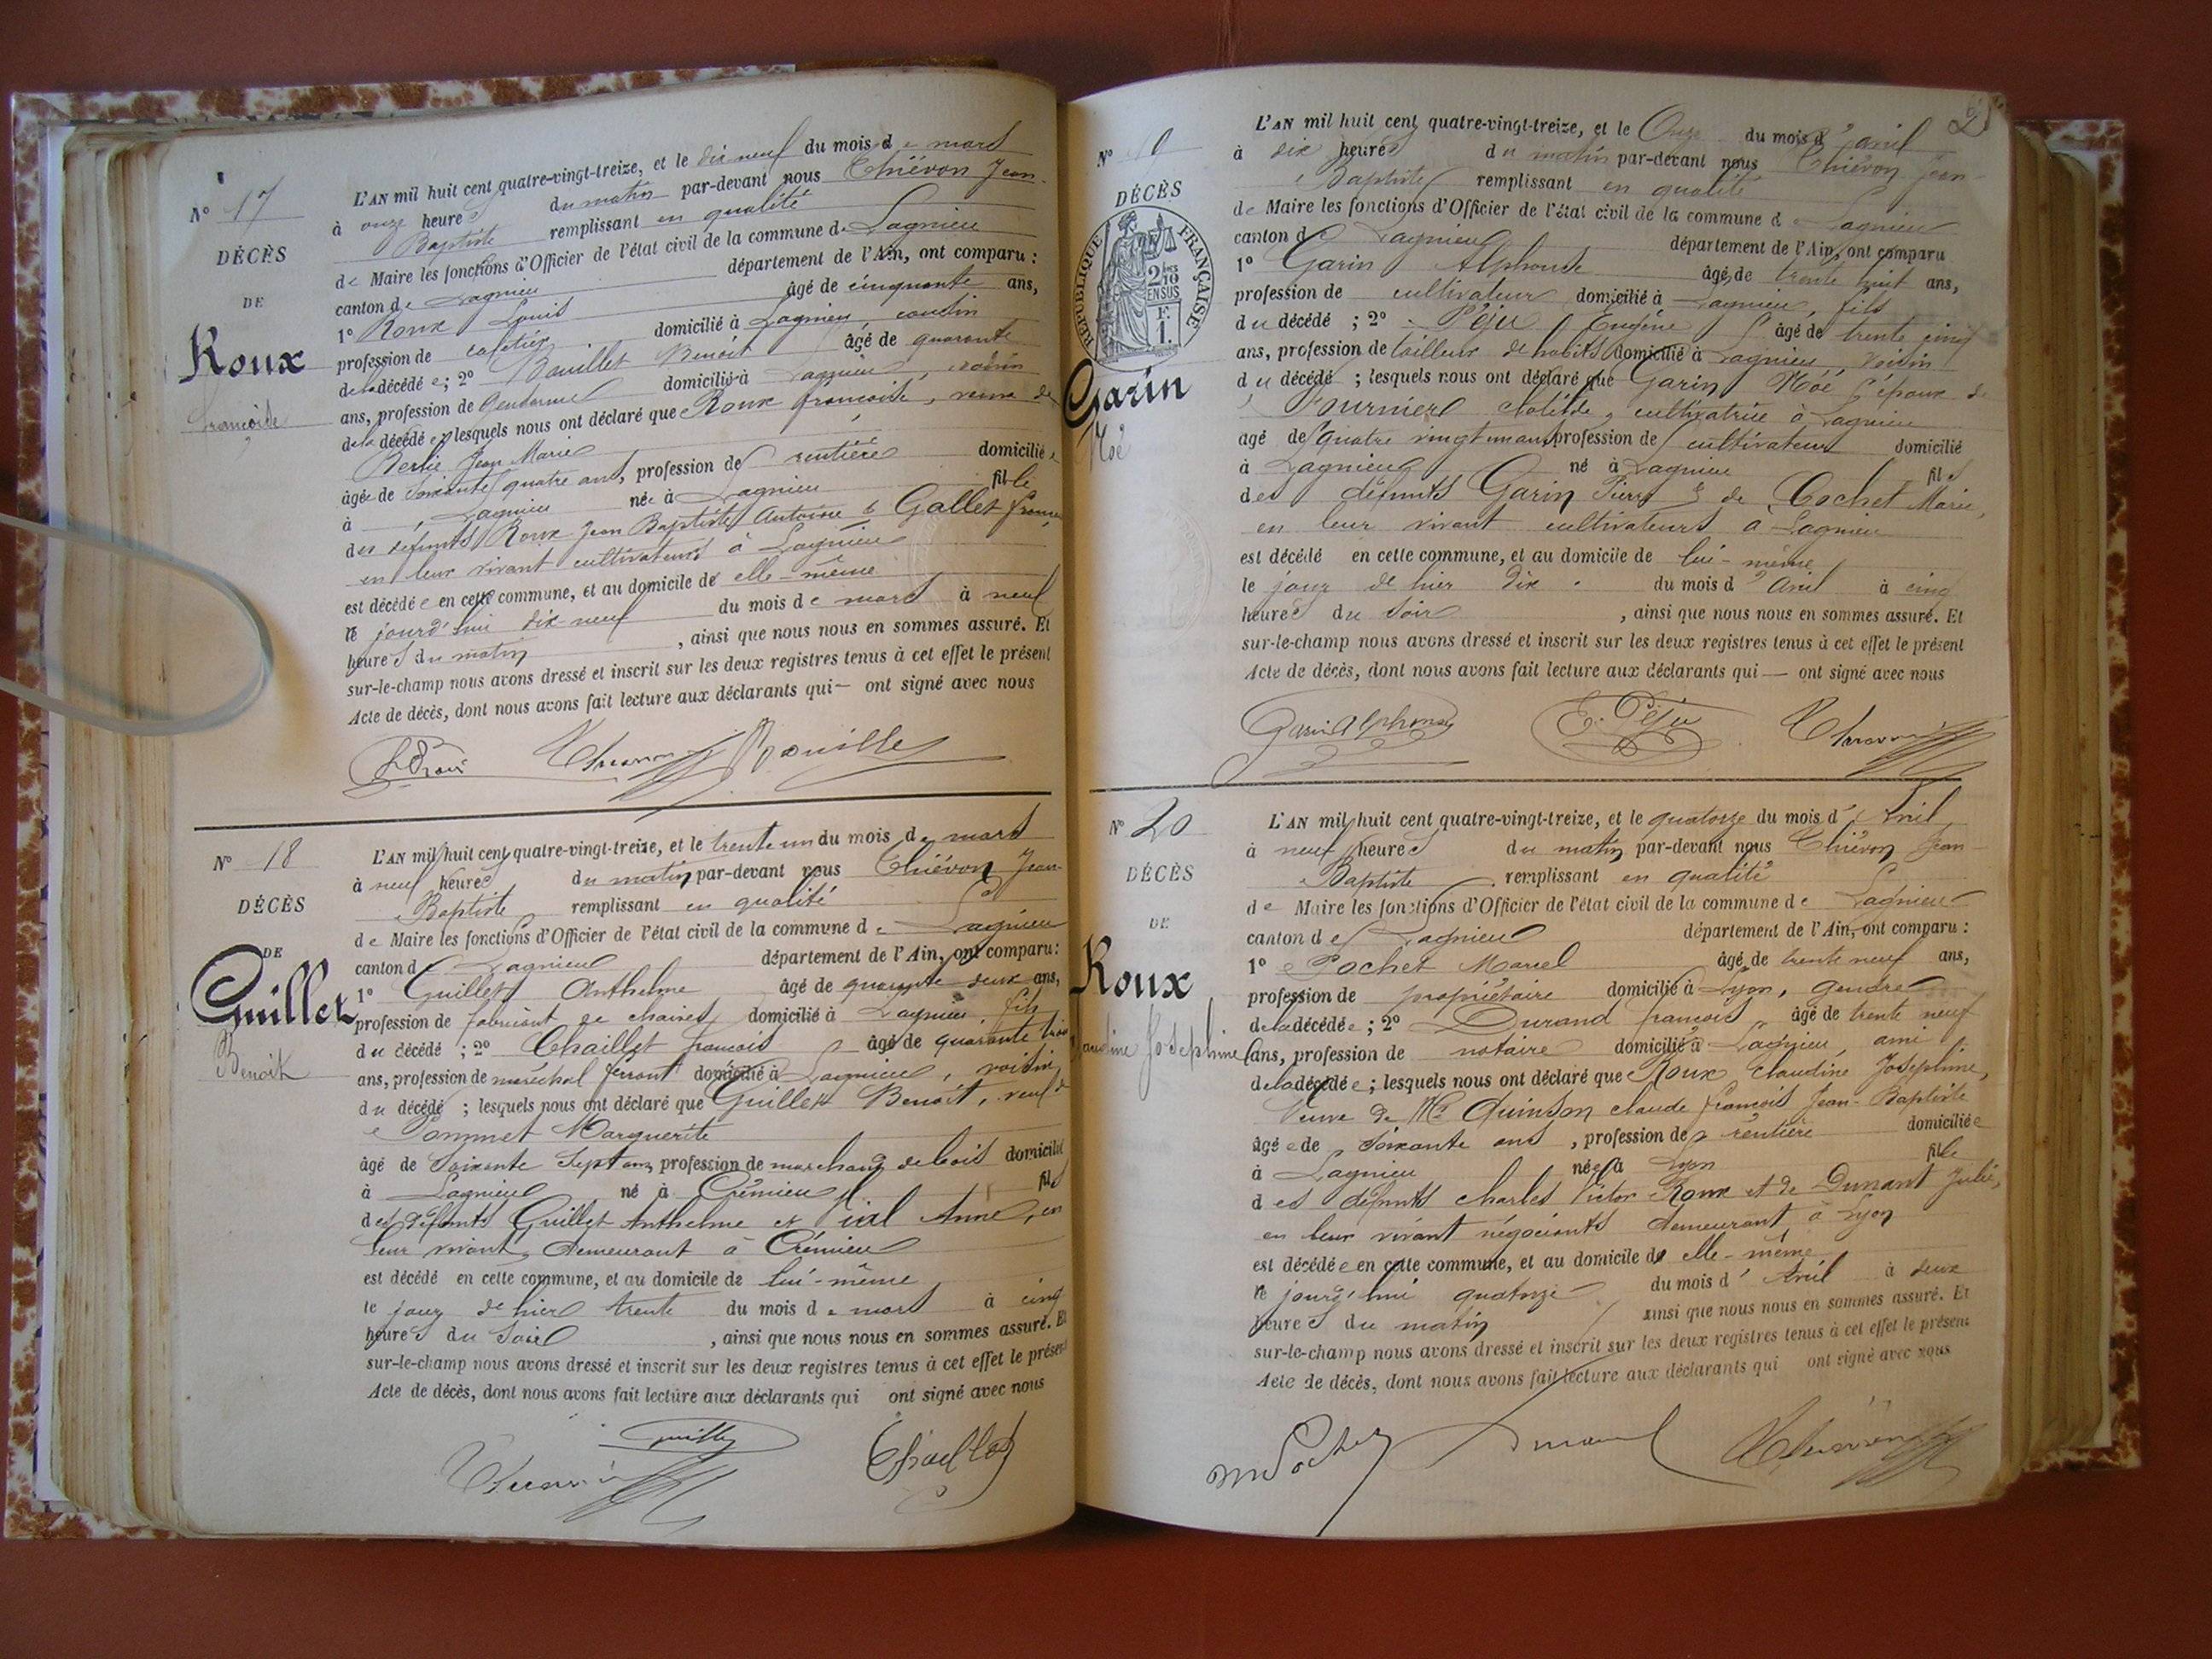 N° 17
DÉCÈS
DE
Roux
Françoise
L'AN mil huit cent quatre-vingt-treize, et le dix neuf du mois de mars
à onze heures du matin par-devant nous Thiévon Jean-
Baptiste remplissant en qualité
de Maire les fonctions d'Officier de l'état civil de la commune de Lagnieu
canton de Lagnieu département de l'Ain, ont comparu :
1° Roux Louis âgé de cinquante ans,
profession de cafetier domicilié à Lagnieu, cousin
de la décédée ; 2° Bouillet Benoit âgé de quarante
ans, profession de Gendarme domicilié à Lagnieu, voisin
de la décédée ; lesquels nous ont déclaré que Roux françoise, veuve de
Berlie Jean Marie
âgée de soixante quatre ans, profession de rentière domiciliée
à Lagnieu née à Lagnieu fille
des défunts Roux Jean Baptiste Antoine & Gallet
en leur vivant cultivateurs à Lagnieu
est décédée en cette commune, et au domicile de elle-même
le jourd'hui dix-neuf du mois de mars à neuf
heures du matin, ainsi que nous nous en sommes assuré. Et
sur-le-champ nous avons dressé et inscrit sur les deux registres tenus à cet effet le présent
Acte de décès, dont nous avons fait lecture aux déclarants qui — ont signé avec nous
N° 18
DÉCÈS
DE
Guillet
Benoit
L'AN mil huit cent quatre-vingt-treize, et le trente un du mois de mars
à neuf heures du matin par-devant nous Thiévon Jean-
Baptiste remplissant en qualité
de Maire les fonctions d'Officier de l'état civil de la commune de Lagnieu
canton de Lagnieu département de l'Ain, ont comparu :
1° Guillet Anthelme âgé de quarante-deux ans,
profession de fabricant de chaises domicilié à Lagnieu, fils
du décédé ; 2° Chaillet françois âgé de quarante trois
ans, profession de maréchal ferrant domicilié à Lagnieu, voisin
du décédé ; lesquels nous ont déclaré que Guillet Benoit, veuf de
Pommet Marguerite
âgé de soixante sept ans, profession de marchand de bois domicilié
à Lagnieu né à Crémieu fils
des défunts Guillet Anthelme et Anne, en
leur vivant, demeurant à Crémieu
est décédé en cette commune, et au domicile de lui-même
le jour de hier trente du mois de mars à cinq
heures du soir, ainsi que nous nous en sommes assuré. Et
sur-le-champ nous avons dressé et inscrit sur les deux registres tenus à cet effet le présent
Acte de décès, dont nous avons fait lecture aux déclarants qui ont signé avec nous
Chaillet
N°
DÉCÈS
RÉPUBLIQUE FRANÇAISE
2/10 EN SUS
F. 1.
Garin
Noé
L'AN mil huit cent quatre-vingt-treize, et le Onze du mois d'avril
à dix heures du matin par-devant nous Thiévon Jean-
Baptiste remplissant en qualité
de Maire les fonctions d'Officier de l'état civil de la commune de Lagnieu
canton de Lagnieu département de l'Ain, ont comparu
1° Garin Alphonse âgé de trente huit ans,
profession de cultivateur domicilié à Lagnieu, fils
du décédé ; 2° Péju Eugène âgé de trente cinq
ans, profession de tailleur de habits domicilié à Lagnieu voisin
du décédé ; lesquels nous ont déclaré que Garin Noé époux de
Fournier Clotilde, cultivatrice à Lagnieu
agé de quatre vingt un ans profession de cultivateur domicilié
à Lagnieu né à Lagnieu fils
des défunts Garin Pierre & de Cochet Marie,
en leur vivant cultivateurs à Lagnieu
est décédé en cette commune, et au domicile de lui-même
le jour de hier dix du mois d'avril à cinq
heures du soir, ainsi que nous nous en sommes assuré. Et
sur-le-champ nous avons dressé et inscrit sur les deux registres tenus à cet effet le présent
Acte de décès, dont nous avons fait lecture aux déclarants qui — ont signé avec nous
Garin Alphonse E. Péju
N° 20
DÉCÈS
DE
Roux
Claudine Joséphine
L'AN mil huit cent quatre-vingt-treize, et le quatorze du mois d'Avril
à neuf heures du matin par-devant nous Thiévon Jean-
Baptiste remplissant en qualité
de Maire les fonctions d'Officier de l'état civil de la commune de Lagnieu
canton de Lagnieu département de l'Ain, ont comparu :
1° Pochet Marcel âgé de trente neuf ans,
profession de propriétaire domicilié à Lyon, gendre
de la décédée ; 2° Durand françois âgé de trente neuf
ans, profession de notaire domicilié à Lagnieu ami
de la décédée ; lesquels nous ont déclaré que Roux Claudine Joséphine,
Veuve de Mr Quinson Claude françois Jean-Baptiste
âgée de soixante ans, profession de rentière domiciliée
à Lagnieu née à Lyon fille
des défunts Charles Victor Roux et de Dunant Julie,
en leur vivant négociants demeurant à Lyon
est décédée en cette commune, et au domicile de elle-même
le jourd'hui quatorze du mois d'Avril à deux
heures du matin ainsi que nous nous en sommes assuré. Et
sur-le-champ nous avons dressé et inscrit sur les deux registres tenus à cet effet le présent
Acte de décès, dont nous avons fait lecture aux déclarants qui ont signé avec nous